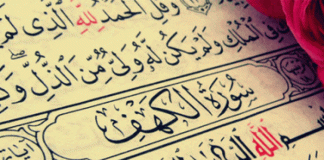 وَقُلِ الْحَمْدُ لِلَّهِ الَّذِي لَمْ
فِي الْمُلْكِ وَلَمْ يَكُن لَّهُ وَلِيٌّ مِّنَ الذُّلِّ
سُورَةُ الْكَهْفِ
اللَّهِ